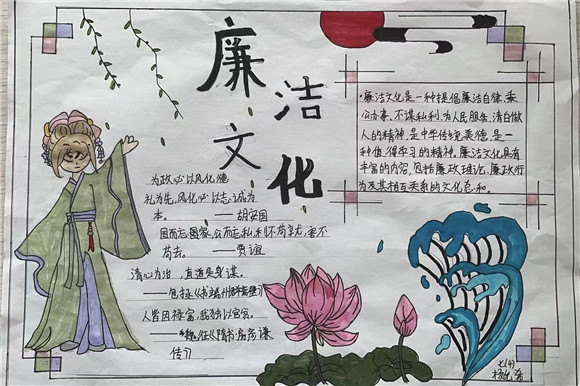 廉洁
文化
为政必以风化德
礼为先,风化必以志诚为
本。 ——胡安国
国而忘家,公而忘私利不苟就,害不
苟去。 ——贾谊
清心为治,直道是身谋。
——包拯《书端州
人皆因禄富,我独以官贫。
传》
·廉洁文化是一种提倡廉洁自律,秉
公办事、不谋私利、为人民服务、清白做
人的精神,是中华传统美德,是一
种值得学习的精神。廉洁文化具有
丰富的内容,包括廉政理论、廉政行
为及其相互关系的文化总和。
七(4)